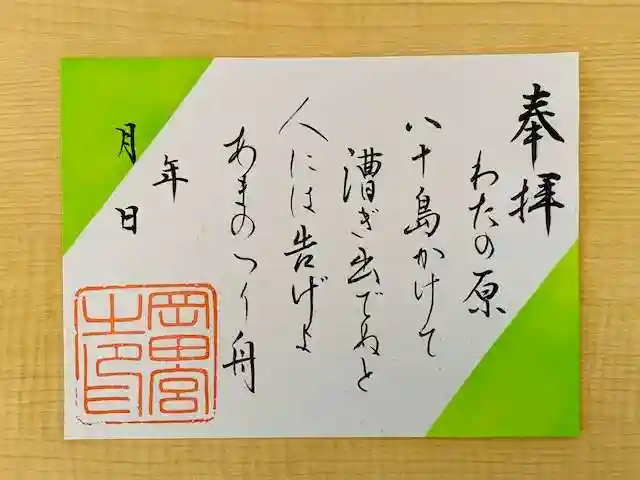 奉拝
わたの原
八十島かけて
漕ぎ出でぬと
人には告げよ
あまのつり舟
年
月日
岡田宮
之印